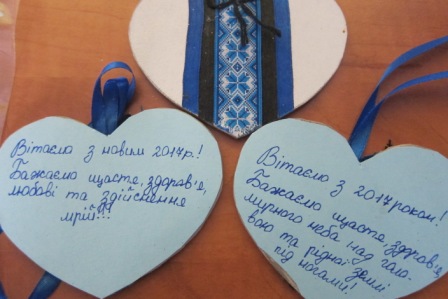 Вітаємо з новим 2017р.!
Бажаємо щастє, здоров'є,
любові та здійснення
мрій!!!
Вітаємо з 2017роком!
Бажаємо щастє, здоров'є,
мирного неба над голо-
вою та рідної землі
під ногами!